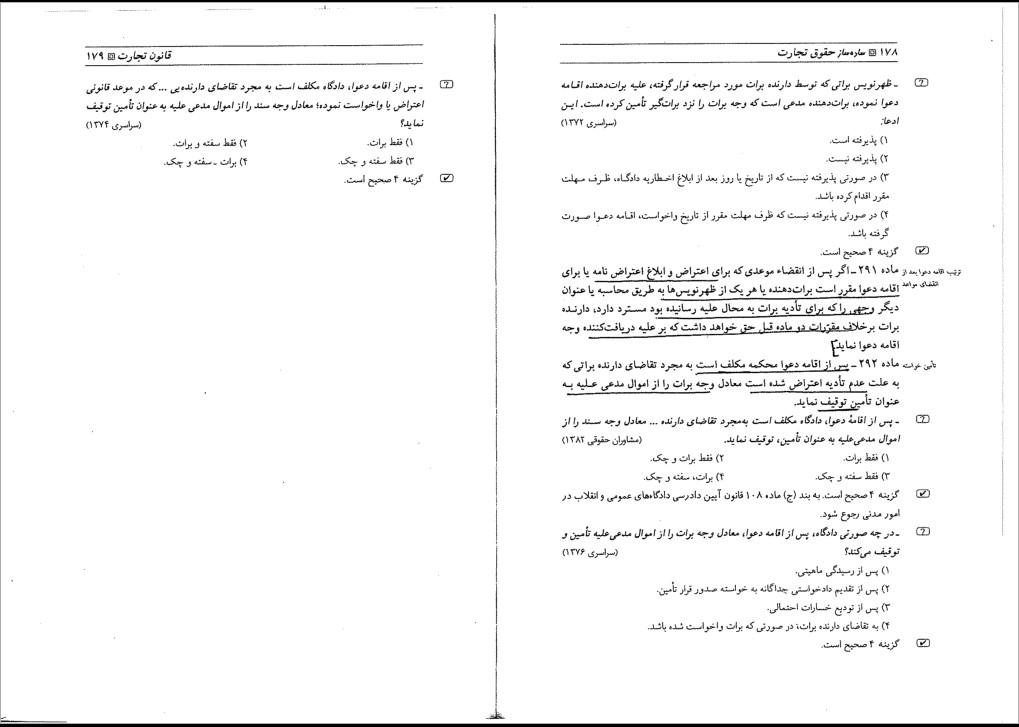 ۱۷۸ ساده‌ساز حقوق تجارت
ـ ظهرنویس براتی که توسط دارنده برات مورد مراجعه قرار گرفته، علیه برات‌دهنده اقامه
دعوا نموده، برات‌دهنده مدعی است که وجه برات را نزد برات‌گیر تأمین کرده است. این
ادعا: (سراسری ۱۳۷۲)
۱) پذیرفته است.
۲) پذیرفته نیست.
۳) در صورتی پذیرفته نیست که از تاریخ یا روز بعد از ابلاغ اخطاریه دادگاه، ظرف مهلت
مقرر اقدام کرده باشد.
۴) در صورتی پذیرفته نیست که ظرف مهلت مقرر از تاریخ واخواست، اقامه دعوا صورت
گرفته باشد.
گزینه ۴ صحیح است.
ترتیب اقامه دعوا بعد از
انقضای مواعد
ماده ۲۹۱ ـ اگر پس از انقضاء موعدی که برای اعتراض و ابلاغ اعتراض نامه یا برای
اقامه دعوا مقرر است برات‌دهنده یا هر یک از ظهرنویس‌ها به طریق محاسبه یا عنوان
دیگر وجهی را که برای تأدیه برات به محال علیه رسانیده بود مسترد دارد، دارنده
برات برخلاف مقررات دو ماده قبل حق خواهد داشت که بر علیه دریافت‌کننده وجه
اقامه دعوا نماید.
تأمین خواسته
ماده ۲۹۲ ـ پس از اقامه دعوا محکمه مکلف است به مجرد تقاضای دارنده براتی که
به علت عدم تأدیه اعتراض شده است معادل وجه برات را از اموال مدعی علیه به
عنوان تأمین توقیف نماید.
ـ پس از اقامهٔ دعوا، دادگاه مکلف است به‌مجرد تقاضای دارنده ... معادل وجه سند را از
اموال مدعی‌علیه به عنوان تأمین، توقیف نماید. (مشاوران حقوقی ۱۳۸۲)
۱) فقط برات. ۲) فقط برات و چک.
۳) فقط سفته و چک. ۴) برات، سفته و چک.
گزینه ۴ صحیح است. به بند (ج) ماده ۱۰۸ قانون آیین دادرسی دادگاه‌های عمومی و انقلاب در
امور مدنی رجوع شود.
ـ در چه صورتی دادگاه، پس از اقامه دعوا، معادل وجه برات را از اموال مدعی‌علیه تأمین و
توقیف می‌کند؟ (سراسری ۱۳۷۶)
۱) پس از رسیدگی ماهیتی.
۲) پس از تقدیم دادخواستی جداگانه به خواسته صدور قرار تأمین.
۳) پس از تودیع خسارات احتمالی.
۴) به تقاضای دارنده برات، در صورتی که برات واخواست شده باشد.
گزینه ۴ صحیح است.
قانون تجارت ۱۷۹
ـ پس از اقامه دعوا، دادگاه مکلف است به مجرد تقاضای دارنده‌یی ... که در موعد قانونی
اعتراض یا واخواست نموده؛ معادل وجه سند را از اموال مدعی علیه به عنوان تأمین توقیف
نماید؟ (سراسری ۱۳۷۴)
۱) فقط برات. ۲) فقط سفته و برات.
۳) فقط سفته و چک. ۴) برات ـ سفته و چک.
گزینه ۴ صحیح است.